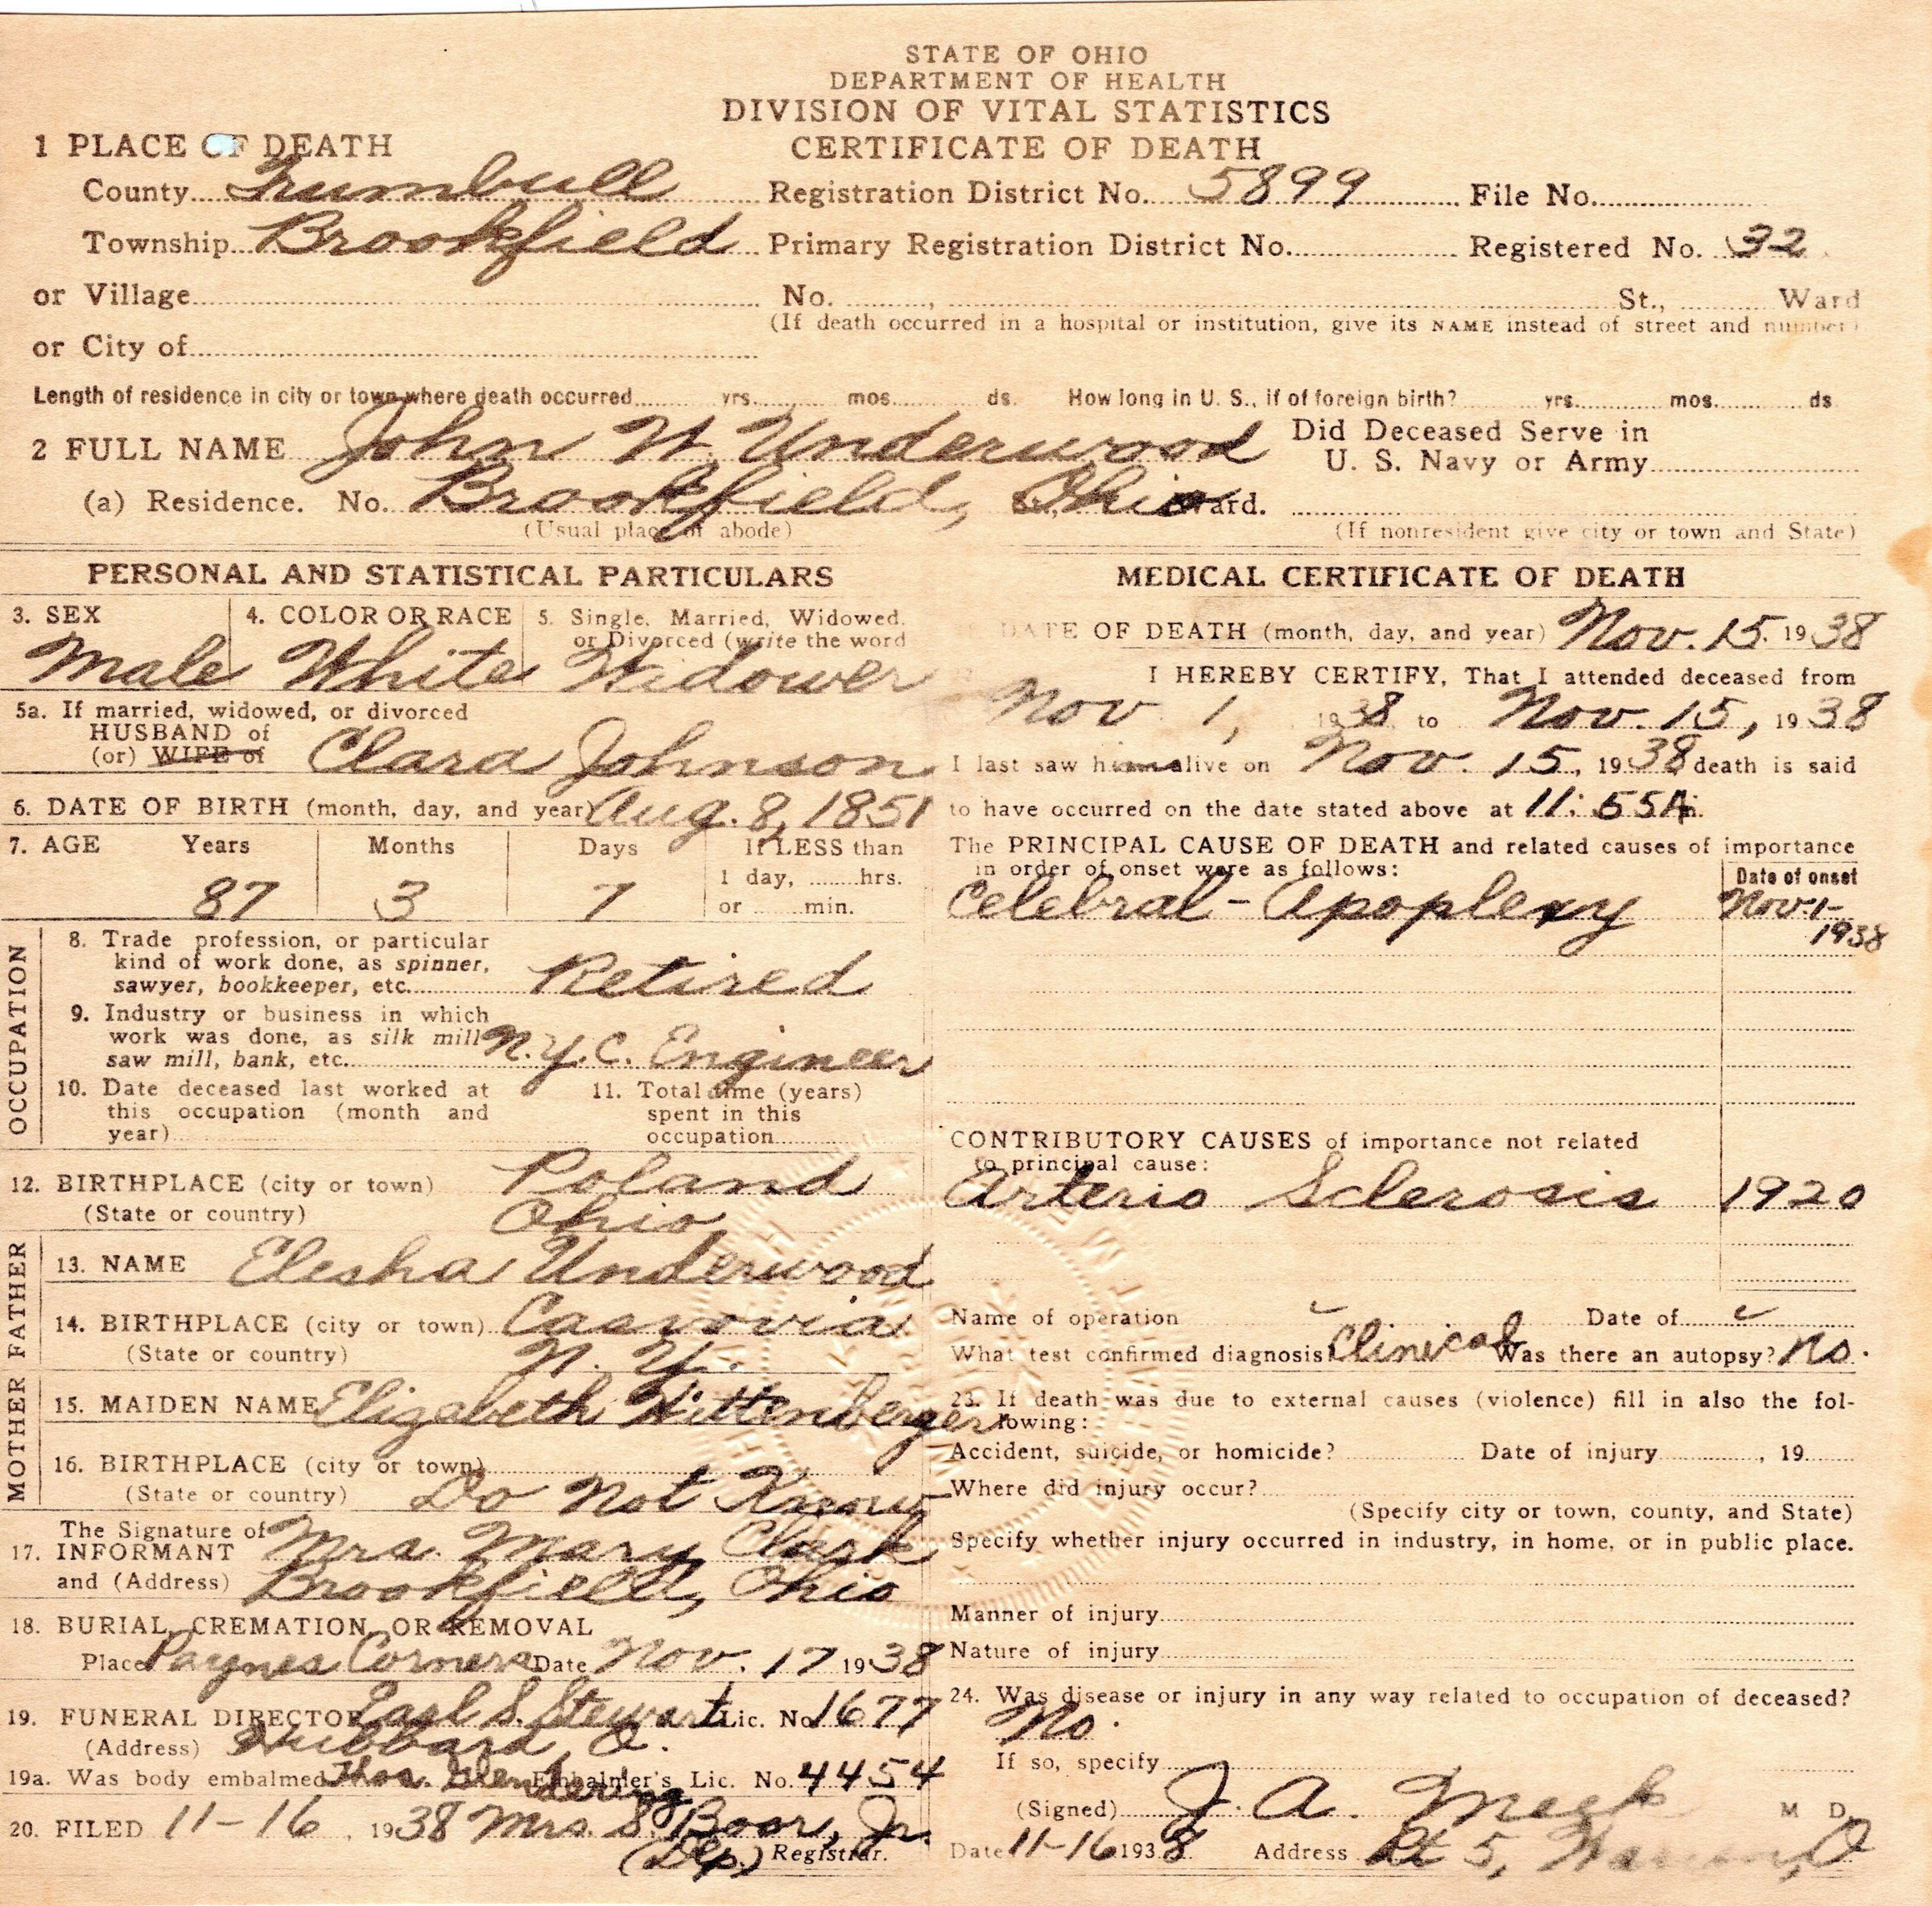 STATE OF OHIO
DEPARTMENT OF HEALTH
DIVISION OF VITAL STATISTICS
CERTIFICATE OF DEATH
1 PLACE OF DEATH
County Trumbull Registration District No. 5899 File No.
Township Brookfield Primary Registration District No. Registered No. 32
or Village No. , St., Ward
(If death occurred in a hospital or institution, give its NAME instead of street and number)
or City of
Length of residence in city or town where death occurred yrs. mos. ds. How long in U. S., if of foreign birth? yrs. mos. ds
2 FULL NAME John W. Underwood Did Deceased Serve in
U. S. Navy or Army
(a) Residence. No. Brookfield, Ohio Ward.
(Usual place of abode) (If nonresident give city or town and State)
PERSONAL AND STATISTICAL PARTICULARS
3. SEX 4. COLOR OR RACE 5. Single, Married, Widowed,
or Divorced (write the word
Male White Widower
5a. If married, widowed, or divorced
HUSBAND of
(or) WIFE of Clara Johnson
6. DATE OF BIRTH (month, day, and year) Aug. 8, 1851
7. AGE Years Months Days If LESS than
1 day, hrs.
87 3 7 or min.
OCCUPATION
8. Trade profession, or particular
kind of work done, as spinner,
sawyer, bookkeeper, etc. Retired
9. Industry or business in which
work was done, as silk mill
saw mill, bank, etc. N.Y.C. Engineer
10. Date deceased last worked at
this occupation (month and
year)
11. Total time (years)
spent in this
occupation
12. BIRTHPLACE (city or town) Poland
(State or country) Ohio
FATHER
13. NAME Elesha Underwood
14. BIRTHPLACE (city or town) Casnovia
(State or country) N. Y.
MOTHER
15. MAIDEN NAME Elizabeth Wittenberger
16. BIRTHPLACE (city or town)
(State or country) Do Not Know
The Signature of
17. INFORMANT Mrs. Mary Clark
and (Address) Brookfield, Ohio
18. BURIAL, CREMATION, OR REMOVAL
Place Paynes Corners Date Nov. 17 1938
19. FUNERAL DIRECTOR Earl S. Stewart Lic. No. 1677
(Address) Hubbard, O.
19a. Was body embalmed Thos. Glendering Embalmer's Lic. No. 4454
20. FILED 11-16, 1938 Mrs. S. Boor, Jr.
(Dep.) Registrar.
MEDICAL CERTIFICATE OF DEATH
DATE OF DEATH (month, day, and year) Nov. 15. 1938
I HEREBY CERTIFY, That I attended deceased from
Nov 1, 1938 to Nov. 15, 1938
I last saw him alive on Nov. 15, 1938 death is said
to have occurred on the date stated above at 11:55 A m.
The PRINCIPAL CAUSE OF DEATH and related causes of importance
in order of onset were as follows: Date of onset
Celebral-Apoplexy Nov-1-
1938
CONTRIBUTORY CAUSES of importance not related
to principal cause:
Arterio Sclerosis 1920
Name of operation Date of
What test confirmed diagnosis? Clinical Was there an autopsy? No.
23. If death was due to external causes (violence) fill in also the fol-
lowing:
Accident, suicide, or homicide? Date of injury , 19
Where did injury occur?
(Specify city or town, county, and State)
Specify whether injury occurred in industry, in home, or in public place.
Manner of injury
Nature of injury
24. Was disease or injury in any way related to occupation of deceased?
No.
If so, specify
(Signed) J. A. Meek M D.
Date 11-16 1938 Address Rt 5, Warren, O